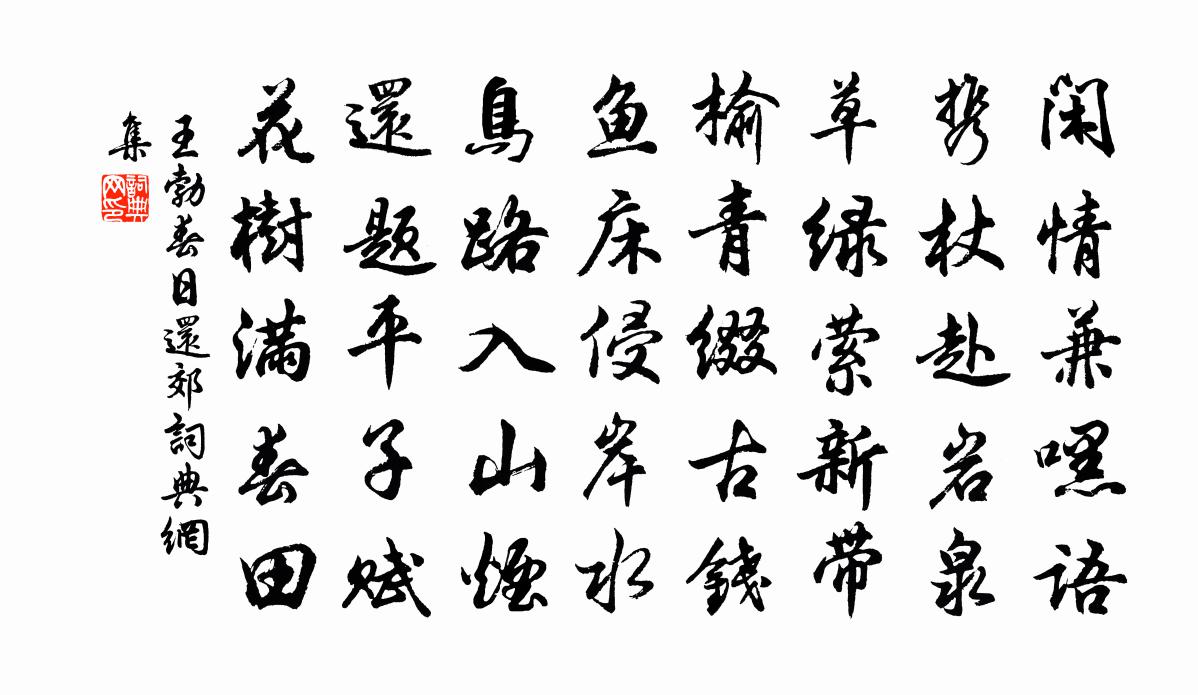 闲情兼嘿语
携杖赴岩泉
草绿萦新带
榆青缀古钱
鱼床侵岸水
鳥路入山煙
還题平子赋
花樹满春田
王勃春日還郊詞典網
集
詞典
网印